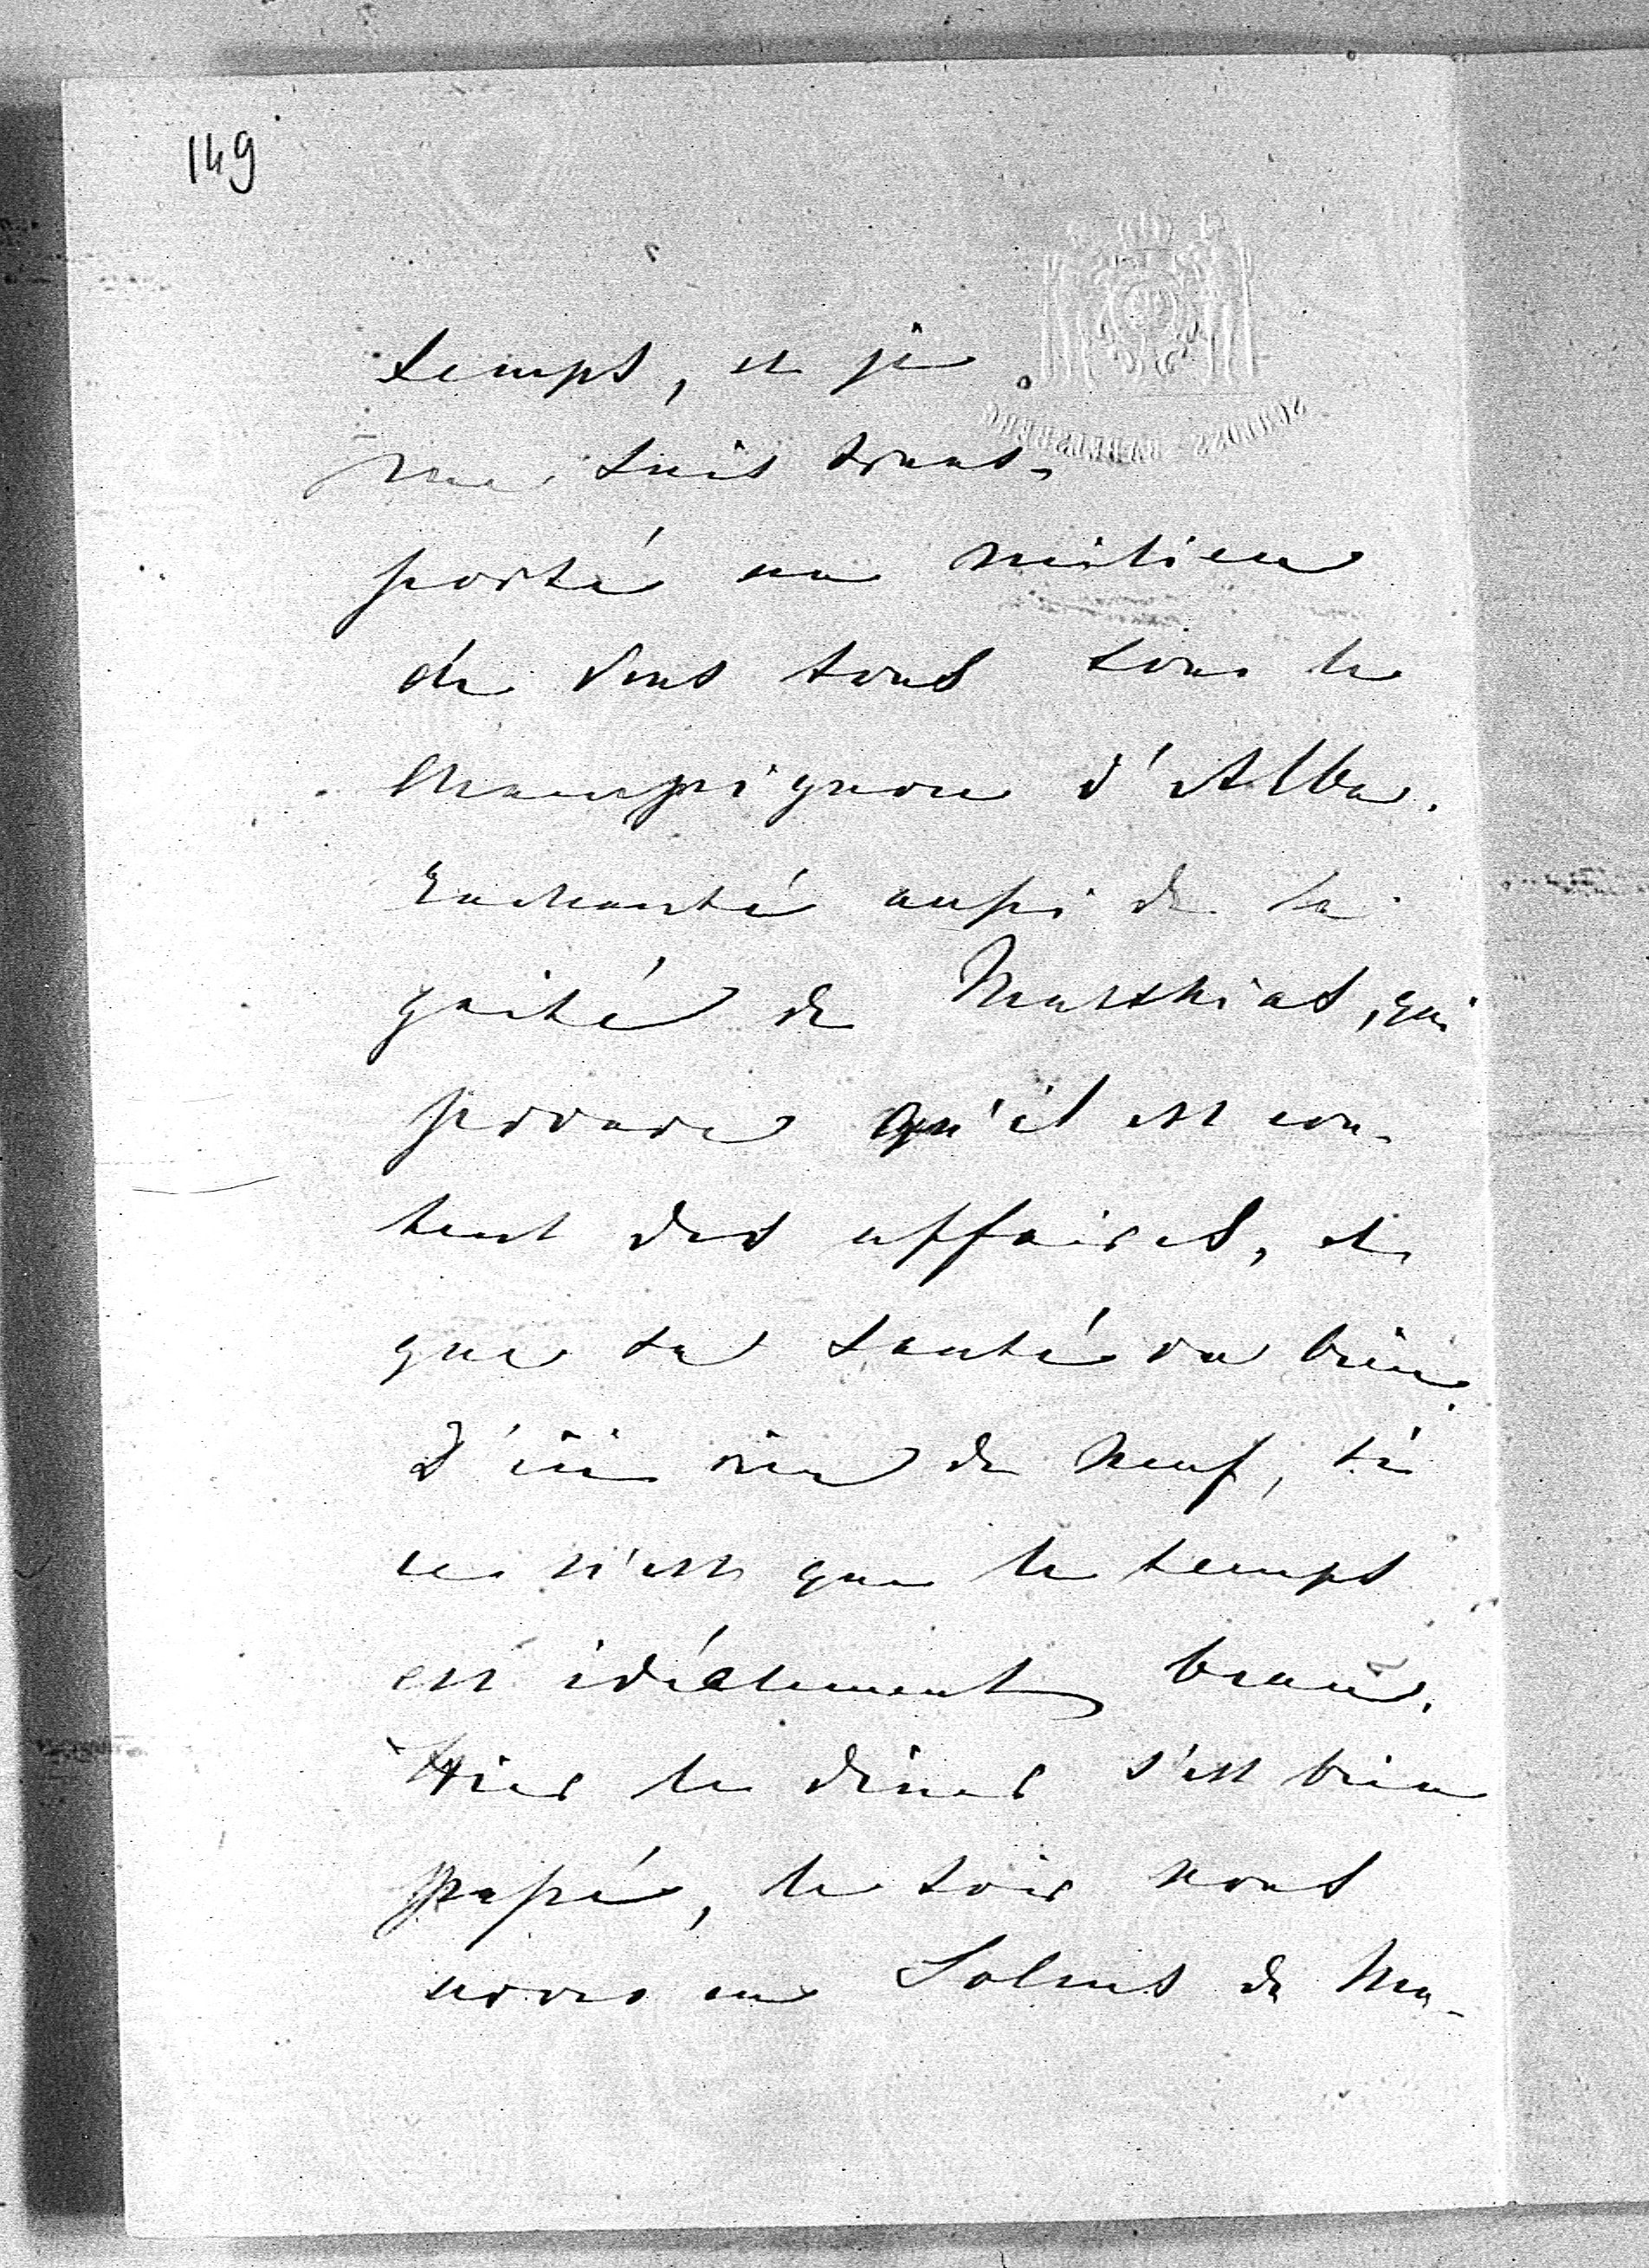 149
temps, et je
me suis trans-
porté au milieu
de vous tous sous le
champignon d'Alba.
Enchanté aussi de la
gaité de Matthias, qui
prouve qu'il est con-
tent des affaires, et
que sa santé va bien.
D'ici rien de neuf, si
ce n'est que le temps
est idéalement beau.
Hier le diner s'est bien
passé, le soir nous
avons eu Solms de Ma-